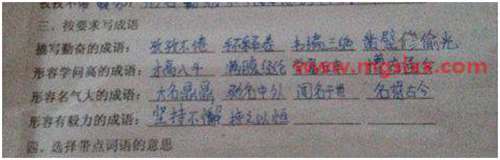 三、按要求写成语
描写勤奋的成语：孜孜不倦 手不释卷 韦编三绝 凿壁偷光
形容学问高的成语：才高八斗 满腹经纶
www.mg
形容名气大的成语：大名鼎鼎 驰名中外 闻名于世 名垂古今
形容有毅力的成语：坚持不懈 持之以恒
四、选择带点词语的意思